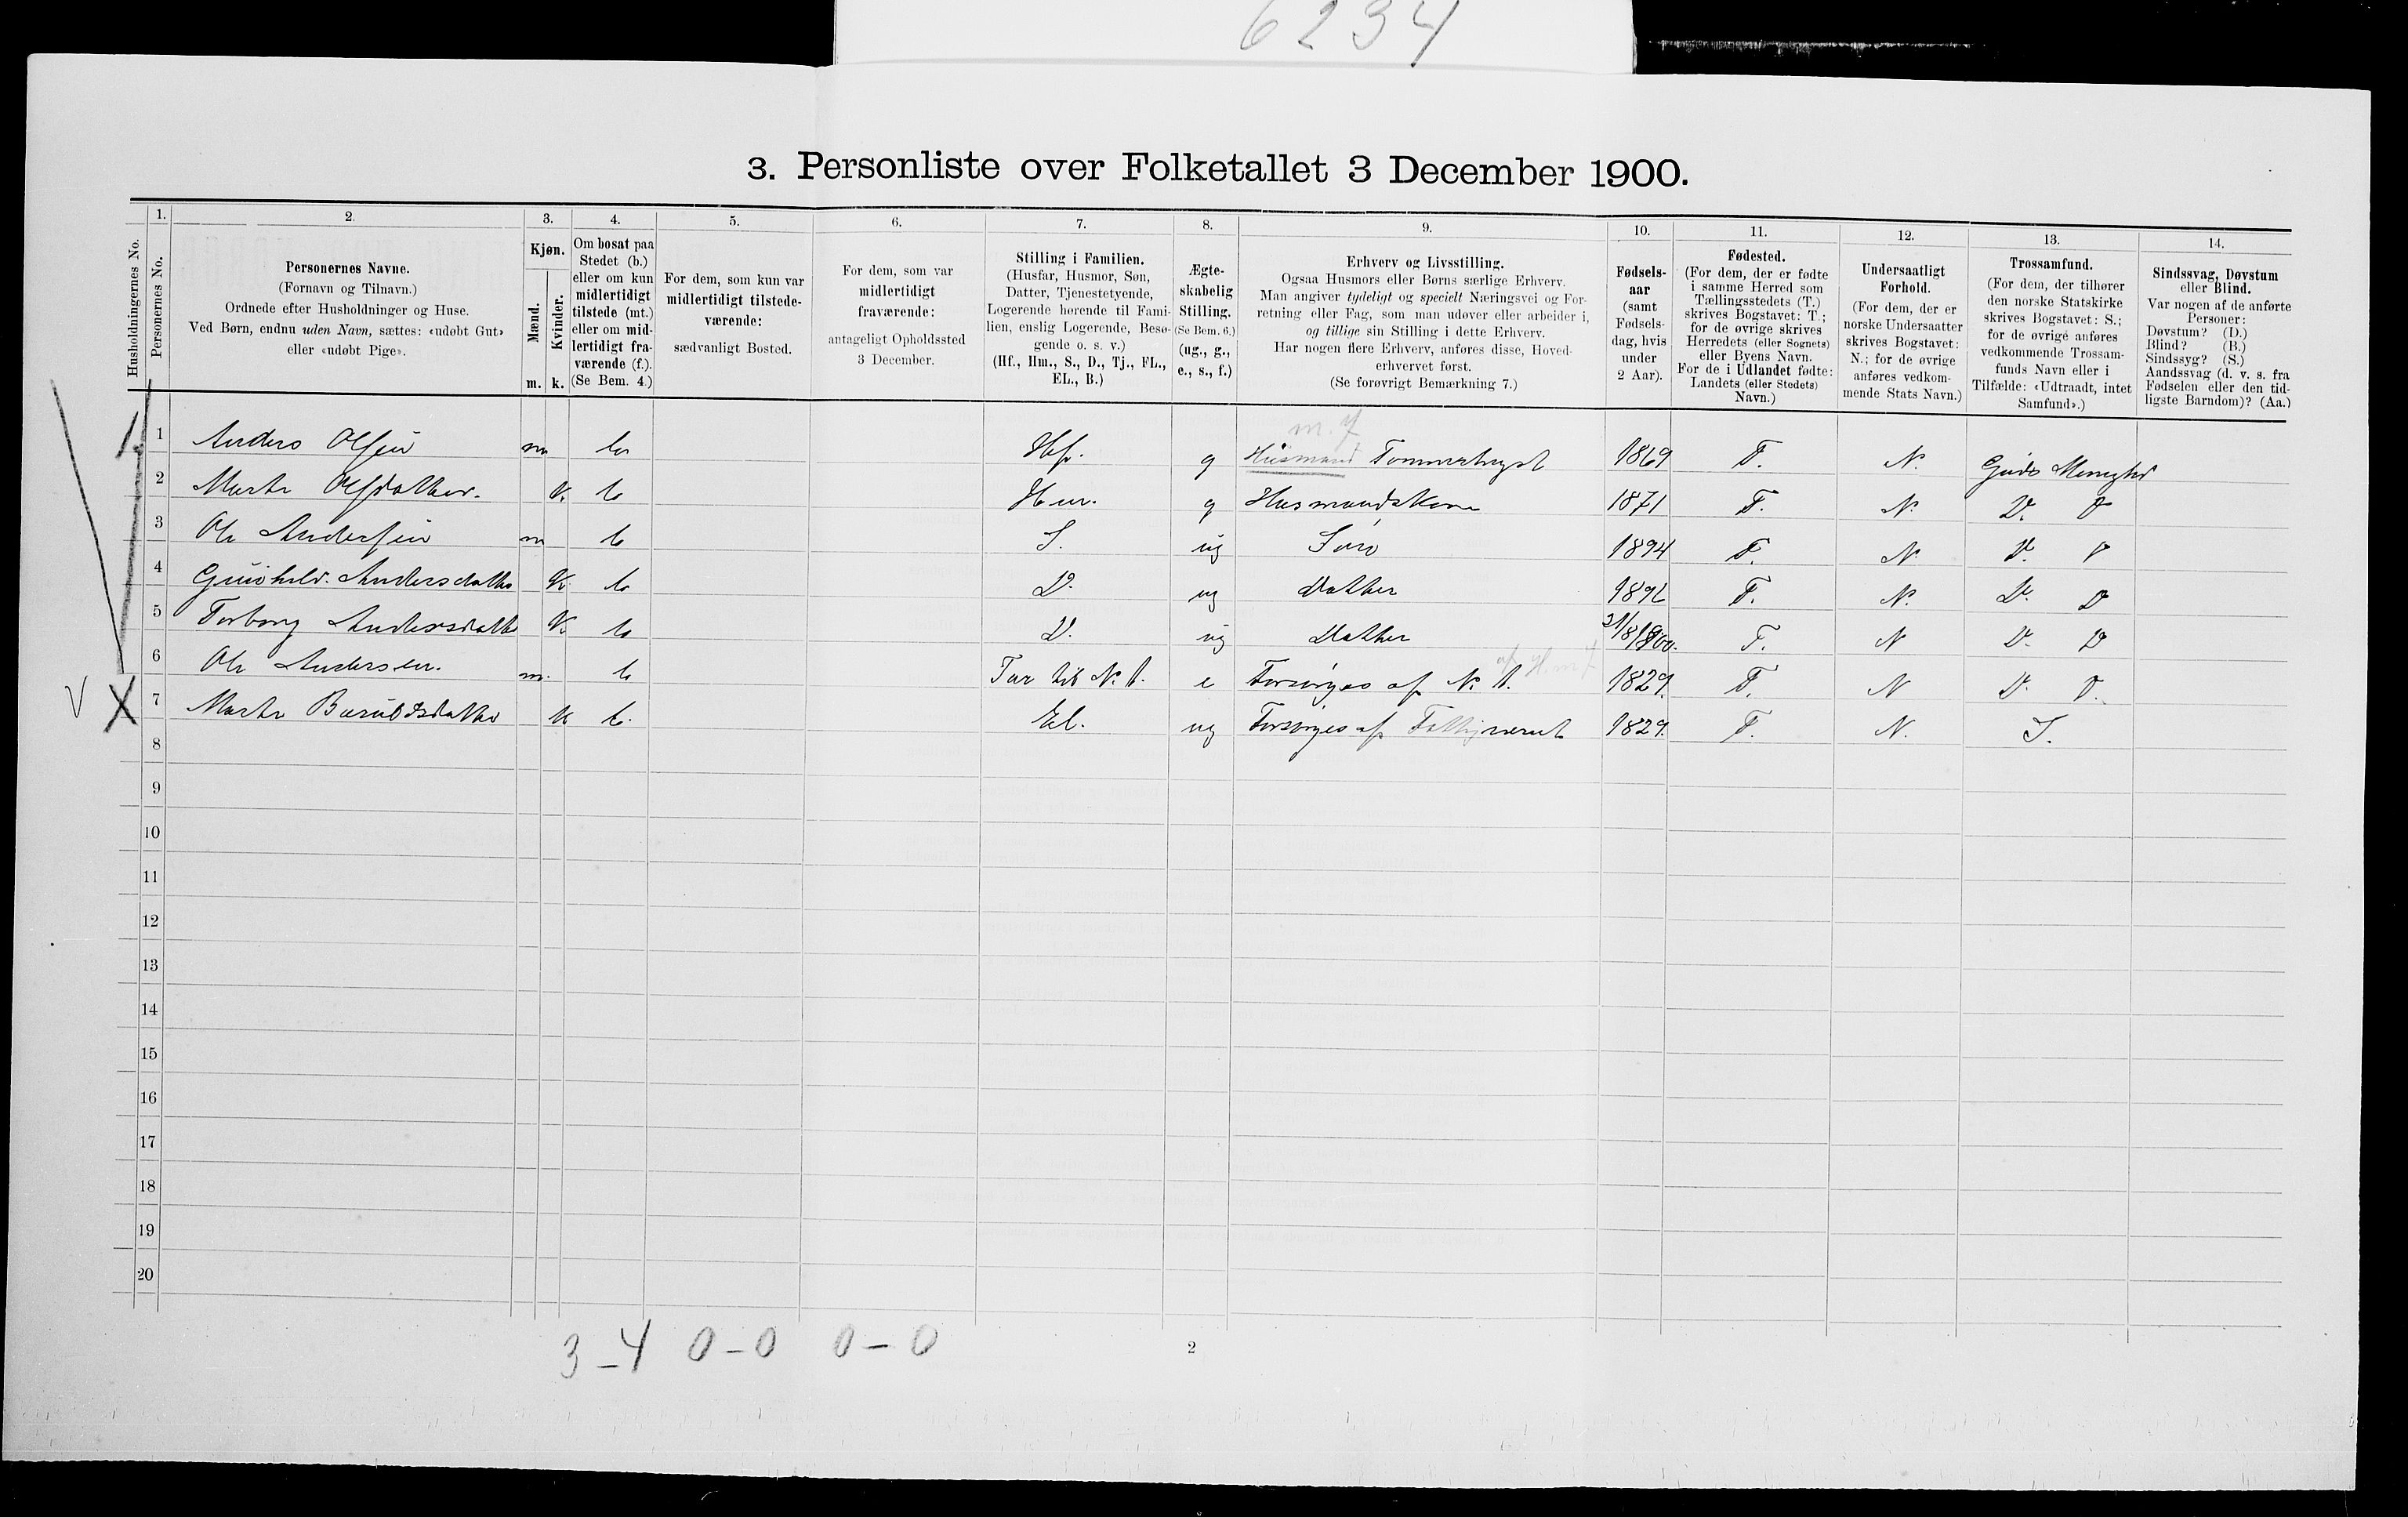 6234
3. Personliste over Folketallet 3 December 1900.
Husholdningernes No.
1.
Personernes No.
2.
Personernes Navne.
(Fornavn og Tilnavn.)
Ordnede efter Husholdninger og Huse.
Ved Børn, endnu uden Navn, sættes: «udøbt Gut»
eller «udøbt Pige».
3.
Kjøn.
Mænd.
m.
Kvinder.
k.
4.
Om bosat paa
Stedet (b.)
eller om kun
midlertidigt
tilstede (mt.)
eller om mid-
lertidigt fra-
værende (f.).
(Se Bem. 4.)
5.
For dem, som kun var
midlertidigt tilstede-
værende:
sædvanligt Bosted.
6.
For dem, som var
midlertidigt
fraværende:
antageligt Opholdssted
3 December.
7.
Stilling i Familien.
(Husfar, Husmor, Søn,
Datter, Tjenestetyende,
Logerende hørende til Fami-
lien, enslig Logerende, Besø-
gende o. s. v.)
(Hf., Hm., S., D., Tj., FL.,
EL., B.)
8.
Ægte-
skabelig
Stilling.
(Se Bem. 6.)
(ug., g.,
e., s., f.)
9.
Erhverv og Livsstilling.
Ogsaa Husmors eller Børns særlige Erhverv.
Man angiver tydeligt og specielt Næringsvei og For-
retning eller Fag, som man udøver eller arbeider i,
og tillige sin Stilling i dette Erhverv.
Har nogen flere Erhverv, anføres disse, Hoved-
erhvervet først.
(Se forøvrigt Bemærkning 7.)
10.
Fødsels-
aar
(samt
Fødsels-
dag, hvis
under
2 Aar).
11.
Fødested.
(For dem, der er fødte
i samme Herred som
Tællingsstedets (T.)
skrives Bogstavet: T.;
for de øvrige skrives
Herredets (eller Sognets)
eller Byens Navn.
For de i Udlandet fødte:
Landets (eller Stedets)
Navn.)
12.
Undersaatligt
Forhold.
(For dem, der er
norske Undersaatter
skrives Bogstavet:
N.; for de øvrige
anføres vedkom-
mende Stats Navn.)
13.
Trossamfund.
(For dem, der tilhører
den norske Statskirke
skrives Bogstavet: S.;
for de øvrige anføres
vedkommende Trossam-
funds Navn eller i
Tilfælde: «Udtraadt, intet
Samfund».)
14.
Sindssvag, Døvstum
eller Blind.
Var nogen af de anførte
Personer:
Døvstum? (D.)
Blind? (B.)
Sindssyg? (S.)
Aandssvag (d. v. s. fra
Fødselen eller den tid-
ligste Barndom)? (Aa.)
m. f
1. 1 Anders Olsen m b Hf. g Husmand Tømmerhugst 1869 T. N. Guds Menighed
2 Marte Olsdatter. k. b Hm. g Husmandskone 1871 T. N. D. D
3 Ole Andersen m b S. ug Søn 1894 T. N D. D
4 Gunhild Andersdatter k b D. ug Datter 1896 T. N. D. D
5 Torborg Andersdatter k. b D. ug Datter 21/8 1900. T. N D. D
6 Ole Andersen. m. b Far til N. 1. e Forsørges af N. 1. 1829. T. N D. D.
V X 7 Marte k b. El. ug Forsørges af Fattigvæsenet 1829. T. N. S.
8
9
10
11
12
13
14
15
16
17
18
19
20
3-4 0-0 0-0
2